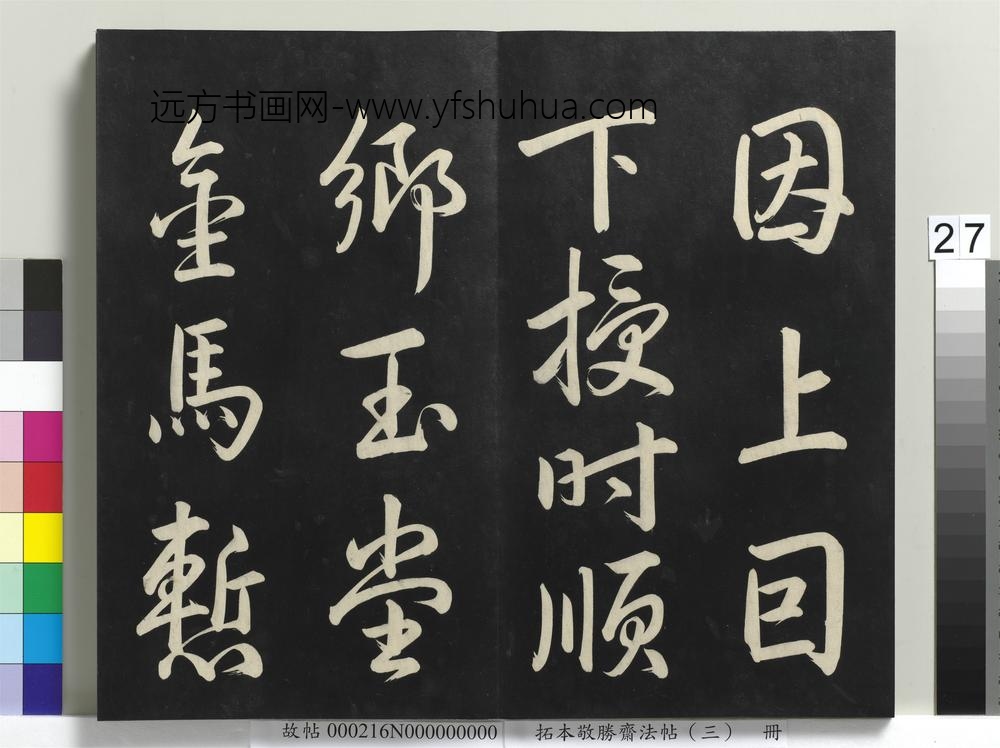 因上回
下授时順
鄉玉堂
金馬慙
远方书画网-www.yfshuhua.com
27
故帖 000216N000000000 拓本敬勝齋法帖（三） 冊